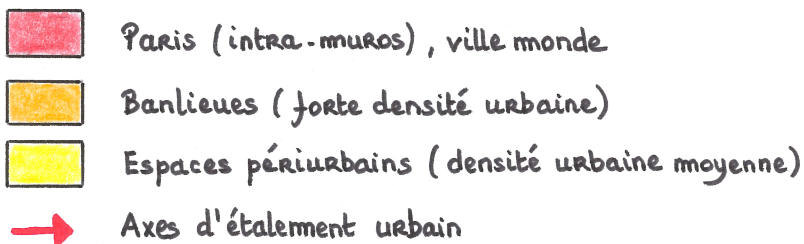 Paris (intra-muros), ville monde
Banlieues (forte densité urbaine)
Espaces périurbains (densité urbaine moyenne)
Axes d'étalement urbain